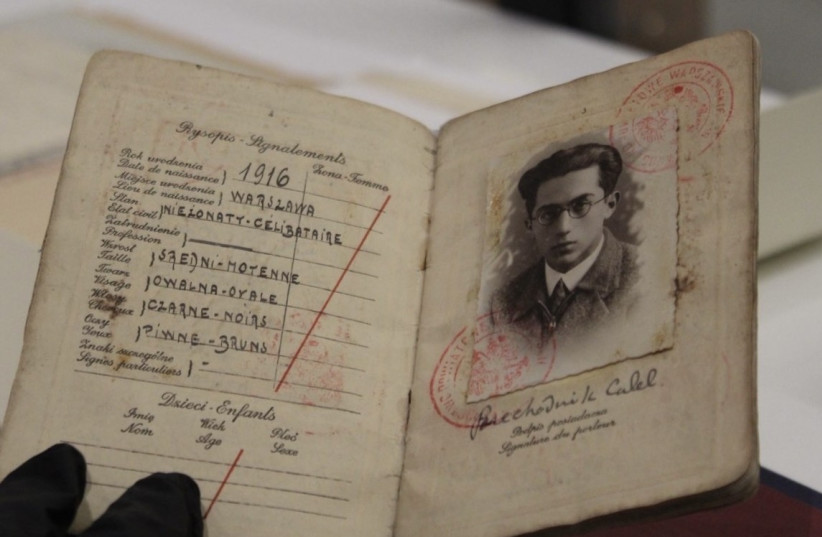 Rysopis - Signalements
Rok urodzenia
Date de naissance } 1916
Żona-Femme
Miejsce urodzenia
Lieu de naissance } WARSZAWA
Stan
Etat civil } NIEŻONATY-CÉLIBATAIRE
Zatrudnienie
Profession }
Wzrost
Taille } SZEDNI-MOTENNE
Twarz
Visage } OWALNA-OVALE
Włosy
Cheveux } CZARNE-NOIRS
Oczy
Yeux } PIWNE-BRUNS
Znaki szczególne
Signes particuliers } -
Dzieci-Enfants
Imię Wiek Płeć
Nom Age Sexe
Perechodnik Calel.
Podpis posiadacza
Signature du porteur